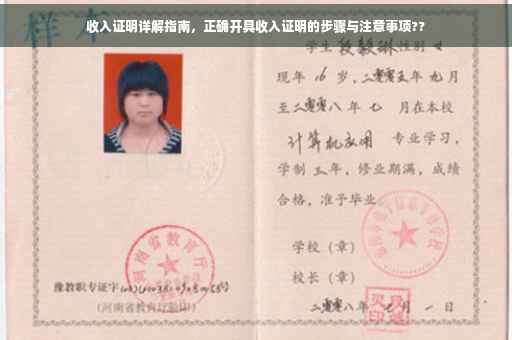 收入证明详解指南，正确开具收入证明的步骤与注意事项??
样本
学生段毅琳性别女
现年16岁，二零零五年九月
至二零零八年七月在本校
计算机应用 专业学习，
学制三年，修业期满，成绩
合格，准予毕业
学校（章）
河南省教育厅
豫教职专证字
校长（章）
（河南省教育厅验印）
二零零八年 月一日